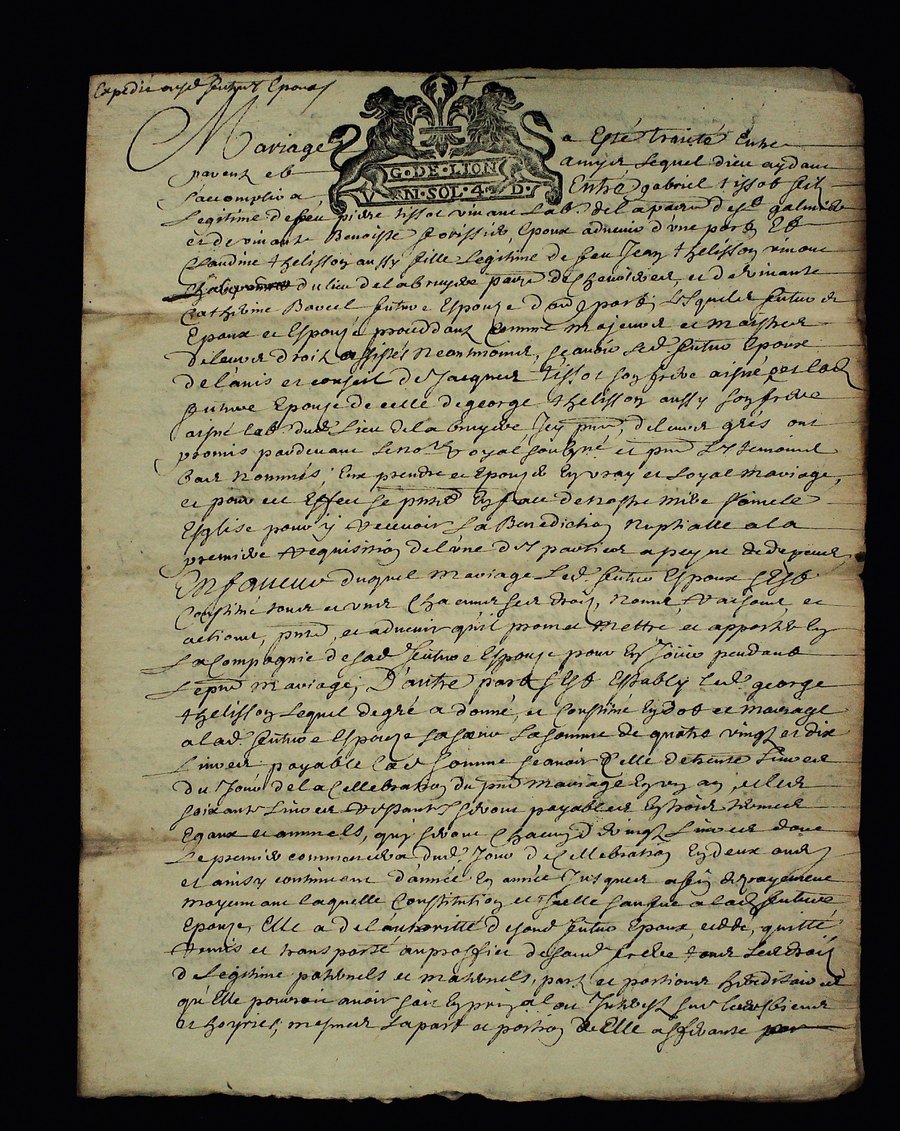 Expedié aud futur Epoux
G·DE·LION
V N·SOL·4·D·
Mariage a Esté traitté Entre
parents et amys lequel dieu aydant
s'accomplira Entre gabriel tissot fils
Legitime de feu pierre tissot vivant lab. de la parr. de st galmier
et de vivante Benoiste Epoux advenir d'une part Et
Claudine thelisson aussy fille Legitime de feu Jean thelisson vivant
du lieu de la bruyere parr. de Chevrieres, et de vivante
Catherine future Espouze d'autre part, Lesquels futurs
Epoux et Espouze proceddant Comme Majeurs et Maistres
de leurs droits assistés Neantmoins, sçavoir led. futur Epoux
de l'avis et conseil de Jacques tissot son frere aisné et lad
future Epouze de celle de george thelisson aussy son frere
aisné lab. dud. Lieu de la bruyere Icy pnts, de leurs grés ont
promis pardevant Le no.re royal soubsigné et pnts Les temoins
bas nommés, Eux prendre et Epouser En vray et Loyal Mariage,
et pour cet Effet se pnter En face de nostre Mere Sainte
Eglise pour y recevoir La Benediction Nuptialle a la
premiere requisition de l'une des parties a peyne de depens
En faveur duquel Mariage Led. futur Espoux s'Est
Constitué tous et uns Chacuns ses droits, Noms, raisons, et
actions, pnts, et advenir qu'il promet Mettre et apporter En
La Compagnie de sad. future Espouze pour En Joüir pendant
Le pnt Mariage; D'autre part s'Est Estably led. george
thelisson Lequel de gré a donné, et Constitué En dot et Mariage
a lad. future Espouze sa sœur La somme de quatre vingt et dix
Livres payable lad. somme sçavoir Celle de trente Livres
du Jour de la Cellebration du pnt Mariage En un an, et les
soixante Livres restants seront payables En trois termes
Egaux et annuels, qui seront Chacun de vingt Livres dont
Le premier commencera dud. Jour de Cellebration En deux ans
et ainsy continuant d'année En année Jusques a fin de payement
moyennant laquelle Constitution et faitte a lad. future
Epouze, Elle a de l'authorité de sond. futur Epoux, cedé, quitté
remis et transporté au proffict de sond. frere tous ses droits
de Legitime paternels et Maternels, part et portions hereditaires
qu'Elle pourroit avoir soit En prin.al ou Interest sur lesd. biens
et hoyries, mesmes La part et portion a Elle afferante